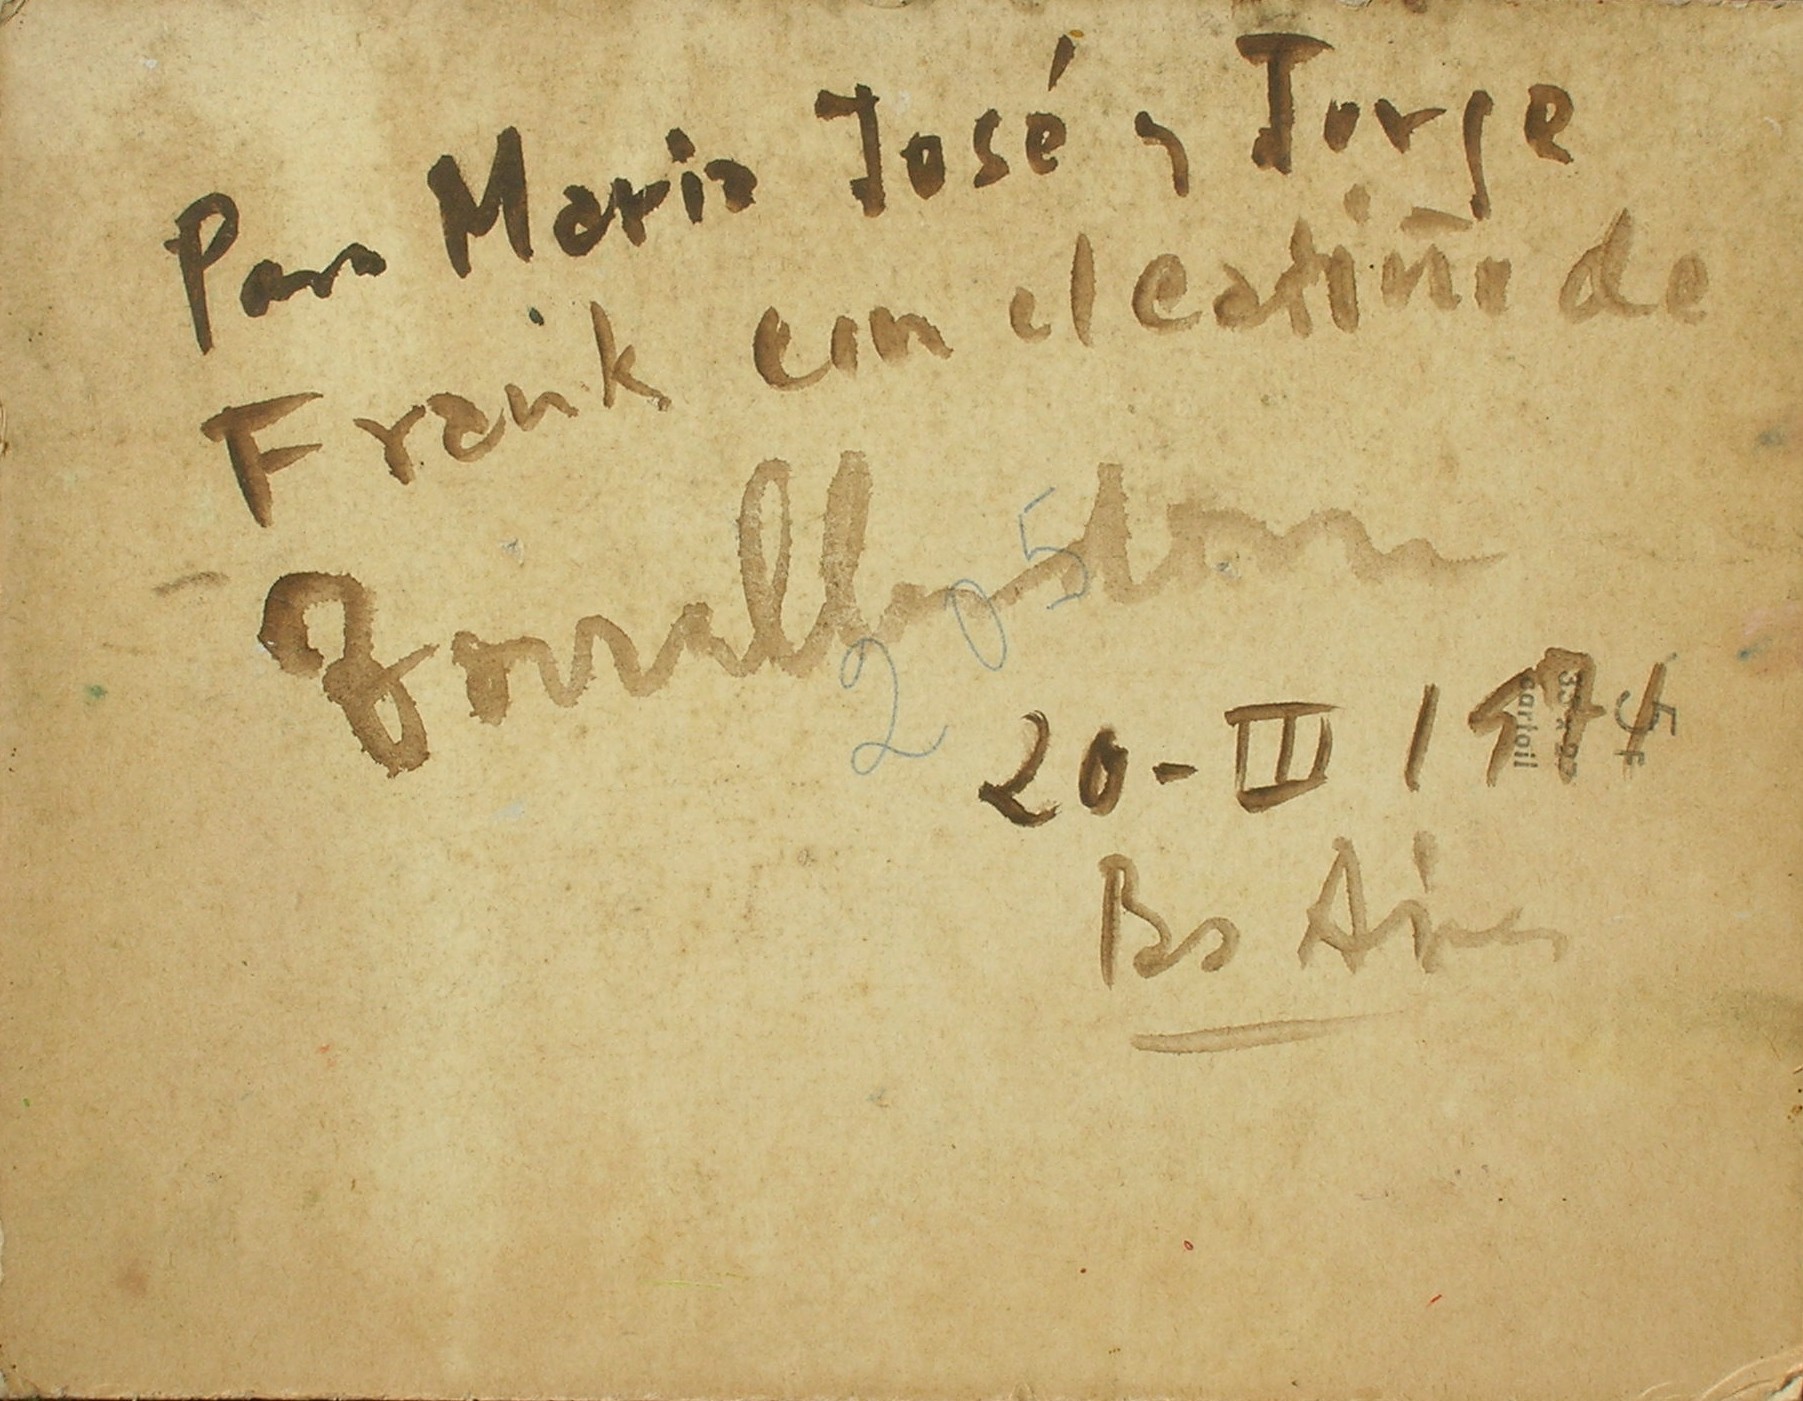 Para Maria José y Jorge
Frank con el cariño de
205
20-III 1974
Bs Aires
cartoil